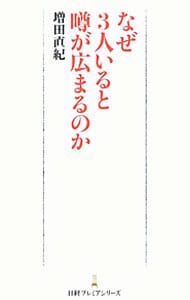 なぜ
3人いると
噂が広まるのか
増田直紀
日経プレミアシリーズ